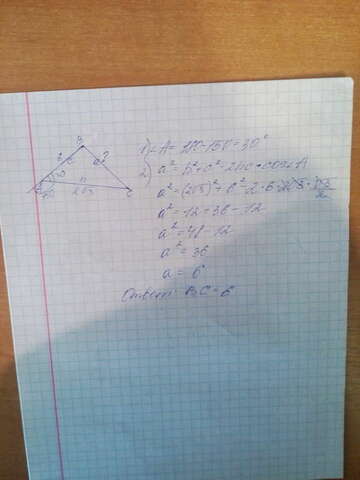 B
6
c
a?
30°
150
A
b
2√3
C
1) ∠A = 180-150=30°
2) a² = b² + c² - 2bc • cos∠A
a² = (2√3)² + 6² - 2·6·2√3·√3/2
a² = 12 + 36 - 12
a² = 48 - 12
a² = 36
a = 6
Ответ: BC = 6